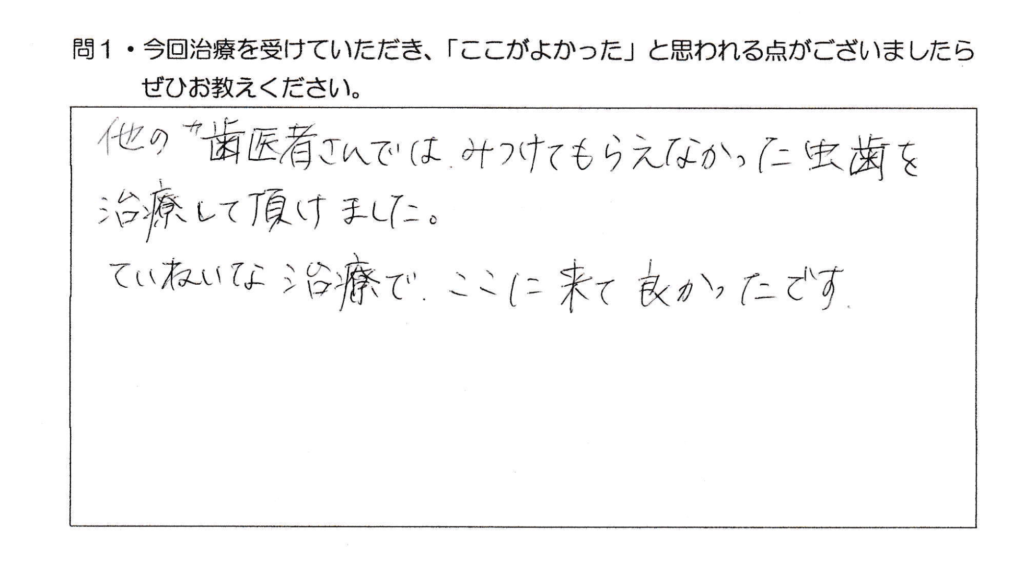 問1・今回治療を受けていただき、「ここがよかった」と思われる点がございましたら
ぜひお教えください。
他の歯医者さんでは、みつけてもらえなかった虫歯を
治療して頂けました。
ていねいな治療で、ここに来て良かったです。